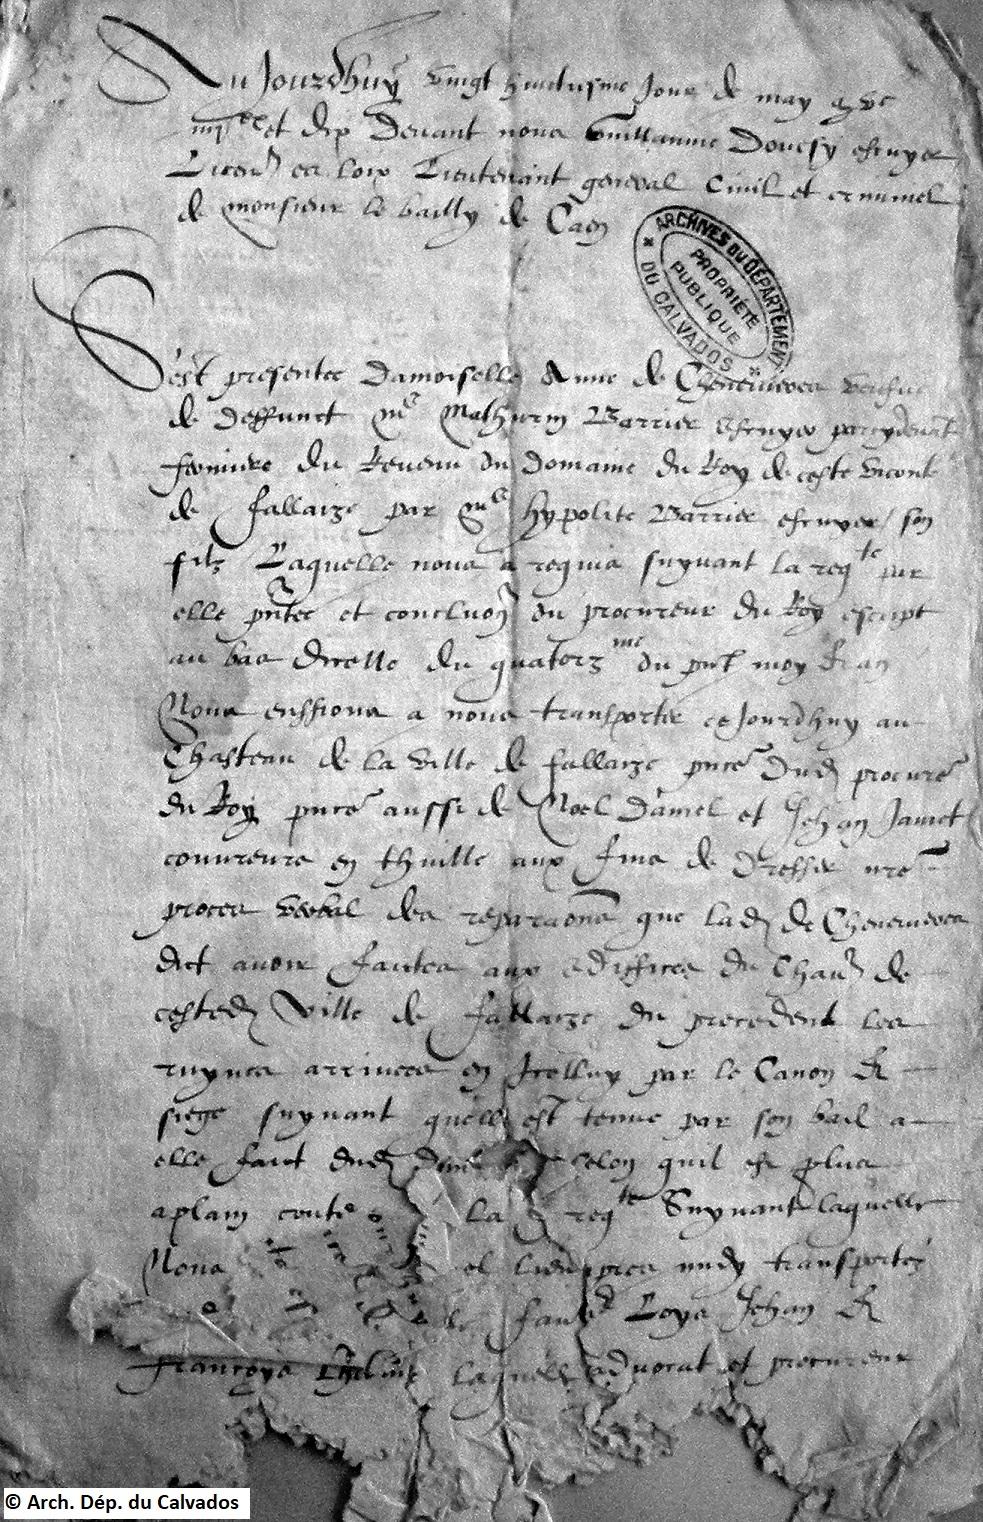 Au Jourdhuy vingt huictiesme jour de may mil vc
iiiixx et dix Devant nous Guillaume Douesy escuyer
Licencié es loix Lieutenant general Civil et criminel
de monsieur le bailly de Caen
ARCHIVES DU DÉPARTEMENT DU CALVADOS
PROPRIÉTÉ PUBLIQUE
S'est presentee Damoiselle Anne de Chenevieres veufue
de deffunct Me Mathurin Barrier escuyer precedent
fermiere du Revenu du Domaine du Roy de ceste viconté
de fallaize par Me Hypolite Barrier escuyer son
filz Laquelle nous a requis suyvant la reqte par
elle pntee et concluon du procureur du Roy escript
au bas dicelle du quatorzme du pnt moy
Nous enssions a nous transporter ce Jourdhuy au
Chasteau de la ville de fallaize pnce dud procure
du Roy pnce aussi de Noel Damel et Jehan Jamet
couvreurs en thuille aux fins de dresser nre
proces verbal des reparaons que lad de Chenevieres
dict avoir faictes aux ediffices du Chau de
cested Ville de fallaize du precedent les
ruynes arrivees en Icelluy par le Canon et
siege suyvant quelle est tenue par son bail a
elle faict dud selon quil est plus
aplain conte la d reqte Suyvant laquelle
Nous transportez
Jehan et
françoys advocat et procureur
© Arch. Dép. du Calvados